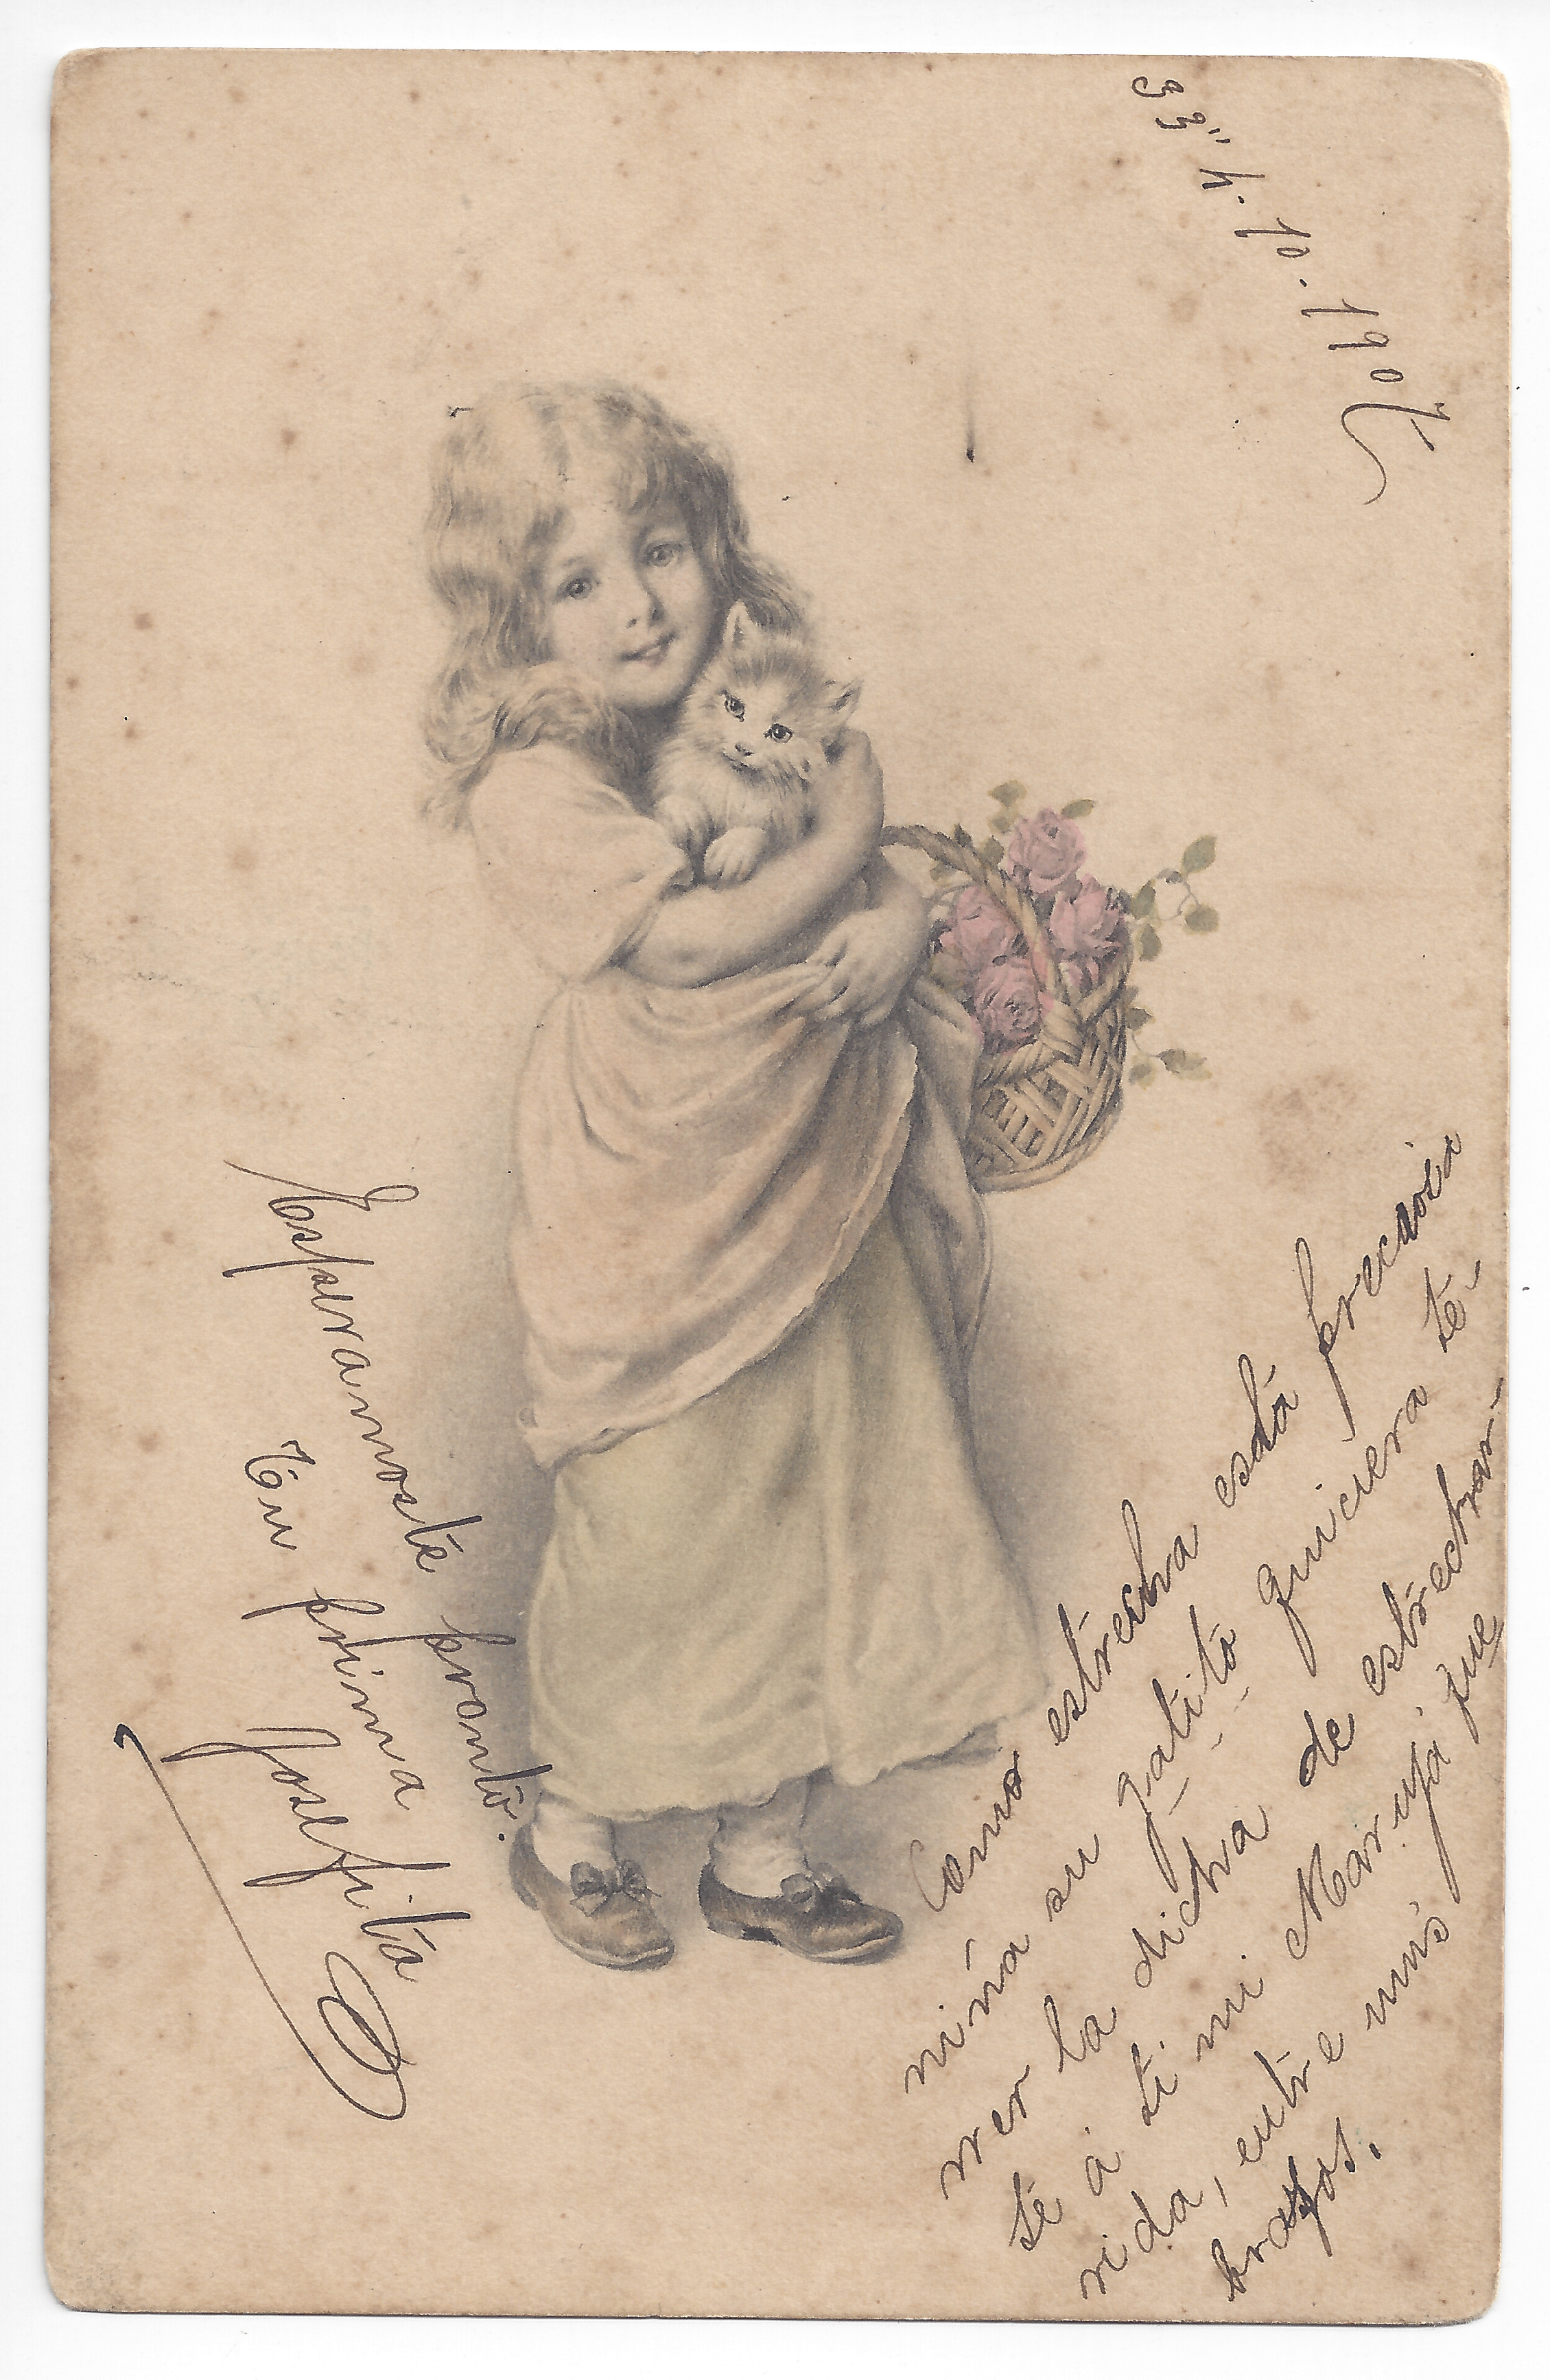 4. 10. 1907
Como estrecha está preciosia
niña su gatito quiciera te-
ner la dicha de estrechar-
te á ti mi Maruja que
rida, entre mis
brasos.
Esperamoste pronto.
Tu prima
Josefita